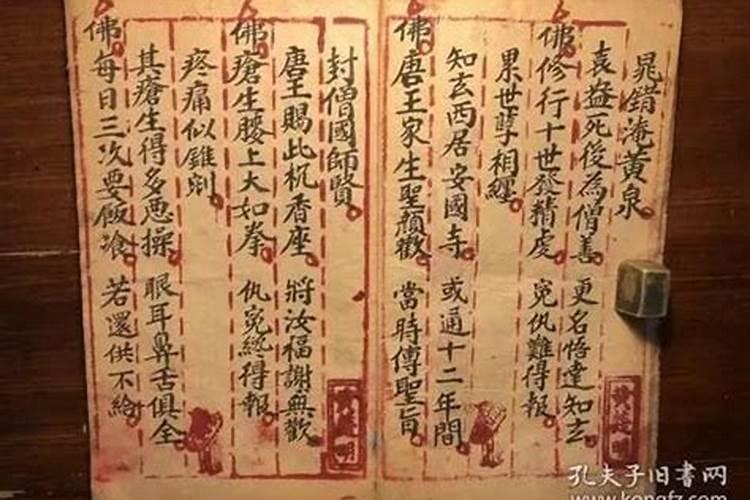 晁錯淹黃泉
袁益死後為僧善 更名悟達知玄
佛修行十世發精虔 冤仇難得報
累世孽相纏
知玄西居安國寺 或通十二年間
佛唐王家生聖顏歡 當時傳聖旨
封僧國師賢
唐王賜此杌香座 將汝福謝無歡
佛瘡生腰上大如拳 仇冤總得報
疼痛似錐剜
其瘡生得多惡操 眼耳鼻舌俱全
佛每日三次要飯飡 若還供不給
孔夫子旧书网